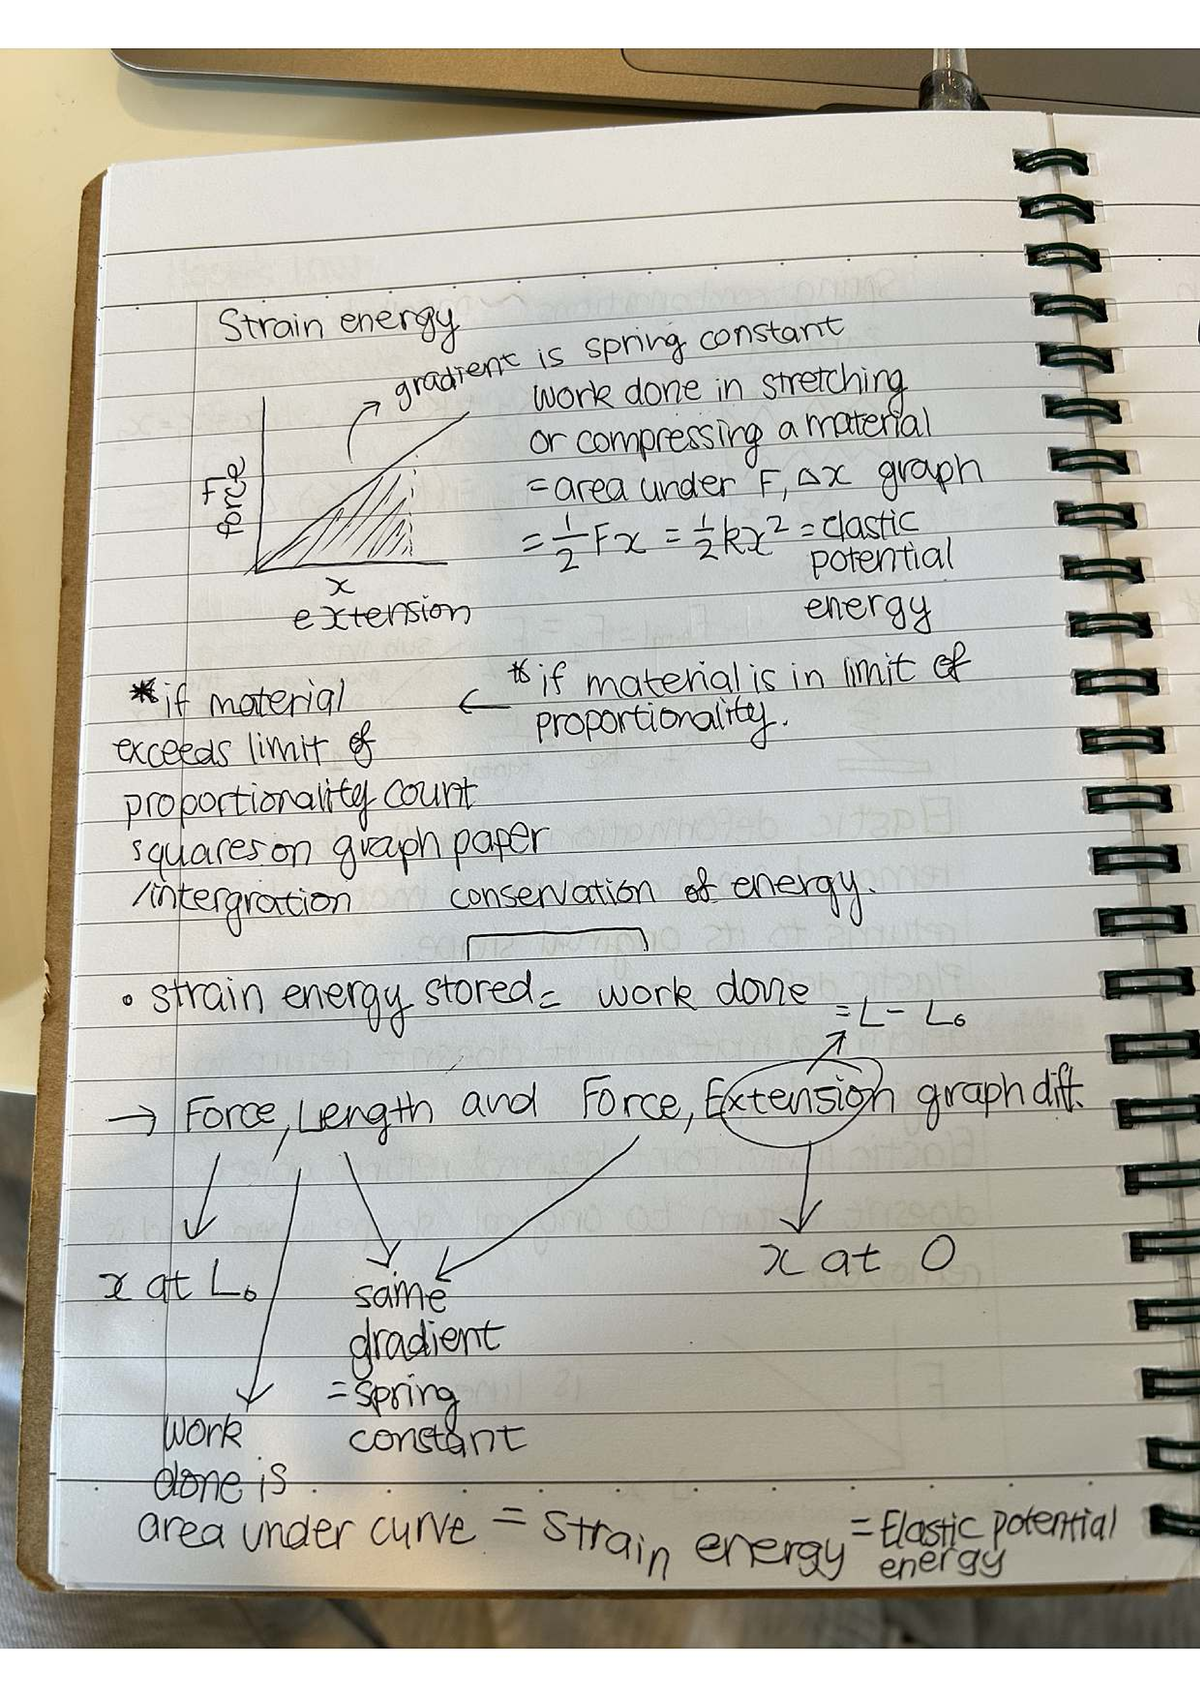 Strain energy
gradient is spring constant
F
force
x
extension
work done in stretching
or compressing a material
= area under F, Δx graph
= 1/2 Fx = 1/2 kx² = elastic
potential
energy
* if material is in limit of
proportionality.
←
* if material
exceeds limit of
proportionality count
squares on graph paper
/intergration
conservation of energy.
• strain energy stored = work done
= L - L₀
→ Force, Length and Force, Extension graph diff.
x at L₀
same
gradient
= spring
constant
x at 0
work
done is
area under curve = strain energy = Elastic potential
energy